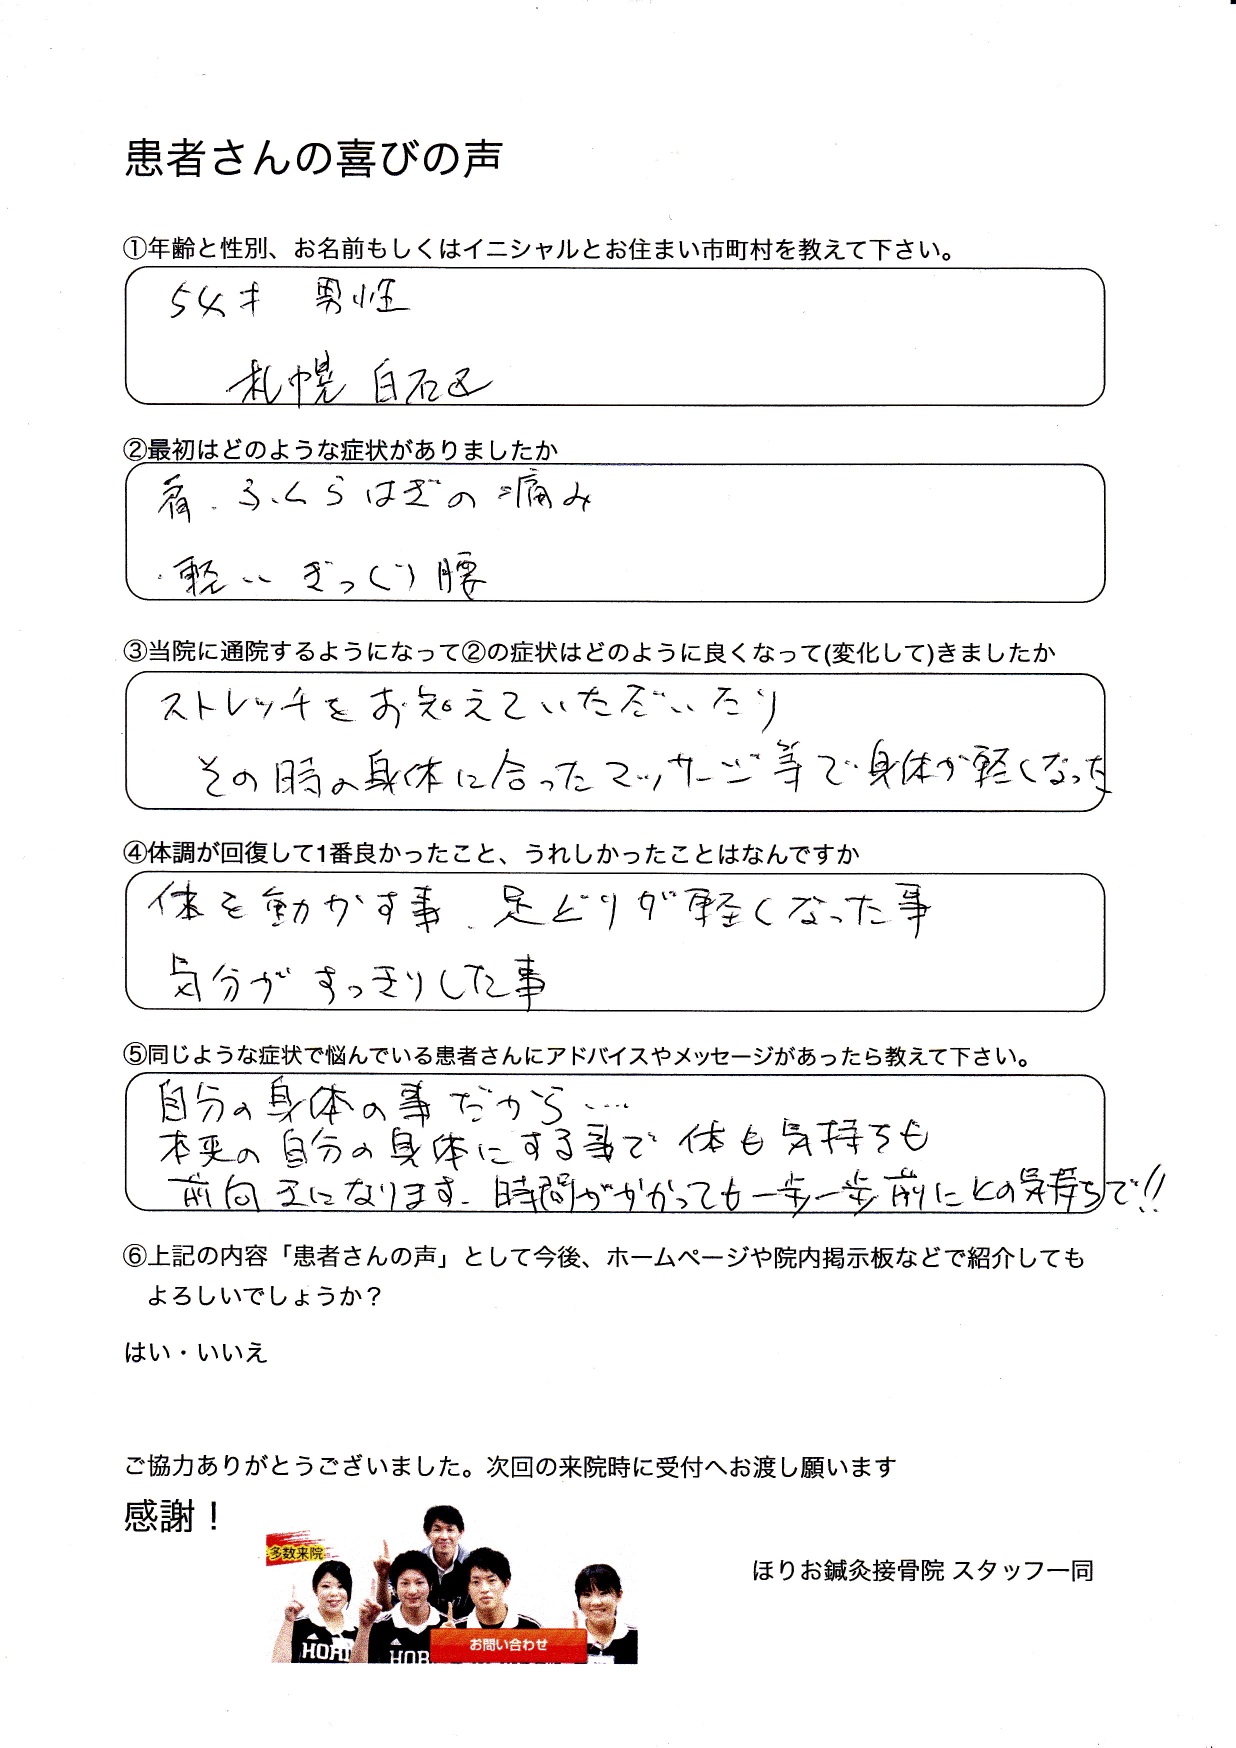 患者さんの喜びの声
①年齢と性別、お名前もしくはイニシャルとお住まい市町村を教えて下さい。
54才 男性
札幌 白石区
②最初はどのような症状がありましたか
肩.ふくらはぎの痛み
・軽い ぎっくり腰
③当院に通院するようになって②の症状はどのように良くなって(変化して)きましたか
ストレッチをお知えていただいたり
その時の身体に合ったマッサージ等で身体が軽くなった
④体調が回復して1番良かったこと、うれしかったことはなんですか
体を動かす事. 足どりが軽くなった事
気分がすっきりした事
⑤同じような症状で悩んでいる患者さんにアドバイスやメッセージがあったら教えて下さい。
自分の身体の事だから…
本来の自分の身体にする事で 体も気持ちも
前向きになります. 時間がかかっても一歩一歩前にとの気持ちで!!
⑥上記の内容「患者さんの声」として今後、ホームページや院内掲示板などで紹介しても
よろしいでしょうか？
はい・いいえ
ご協力ありがとうございました。次回の来院時に受付へお渡し願います
感謝！
多数来院
ほりお鍼灸接骨院 スタッフ一同
お問い合わせ
HORI HOR